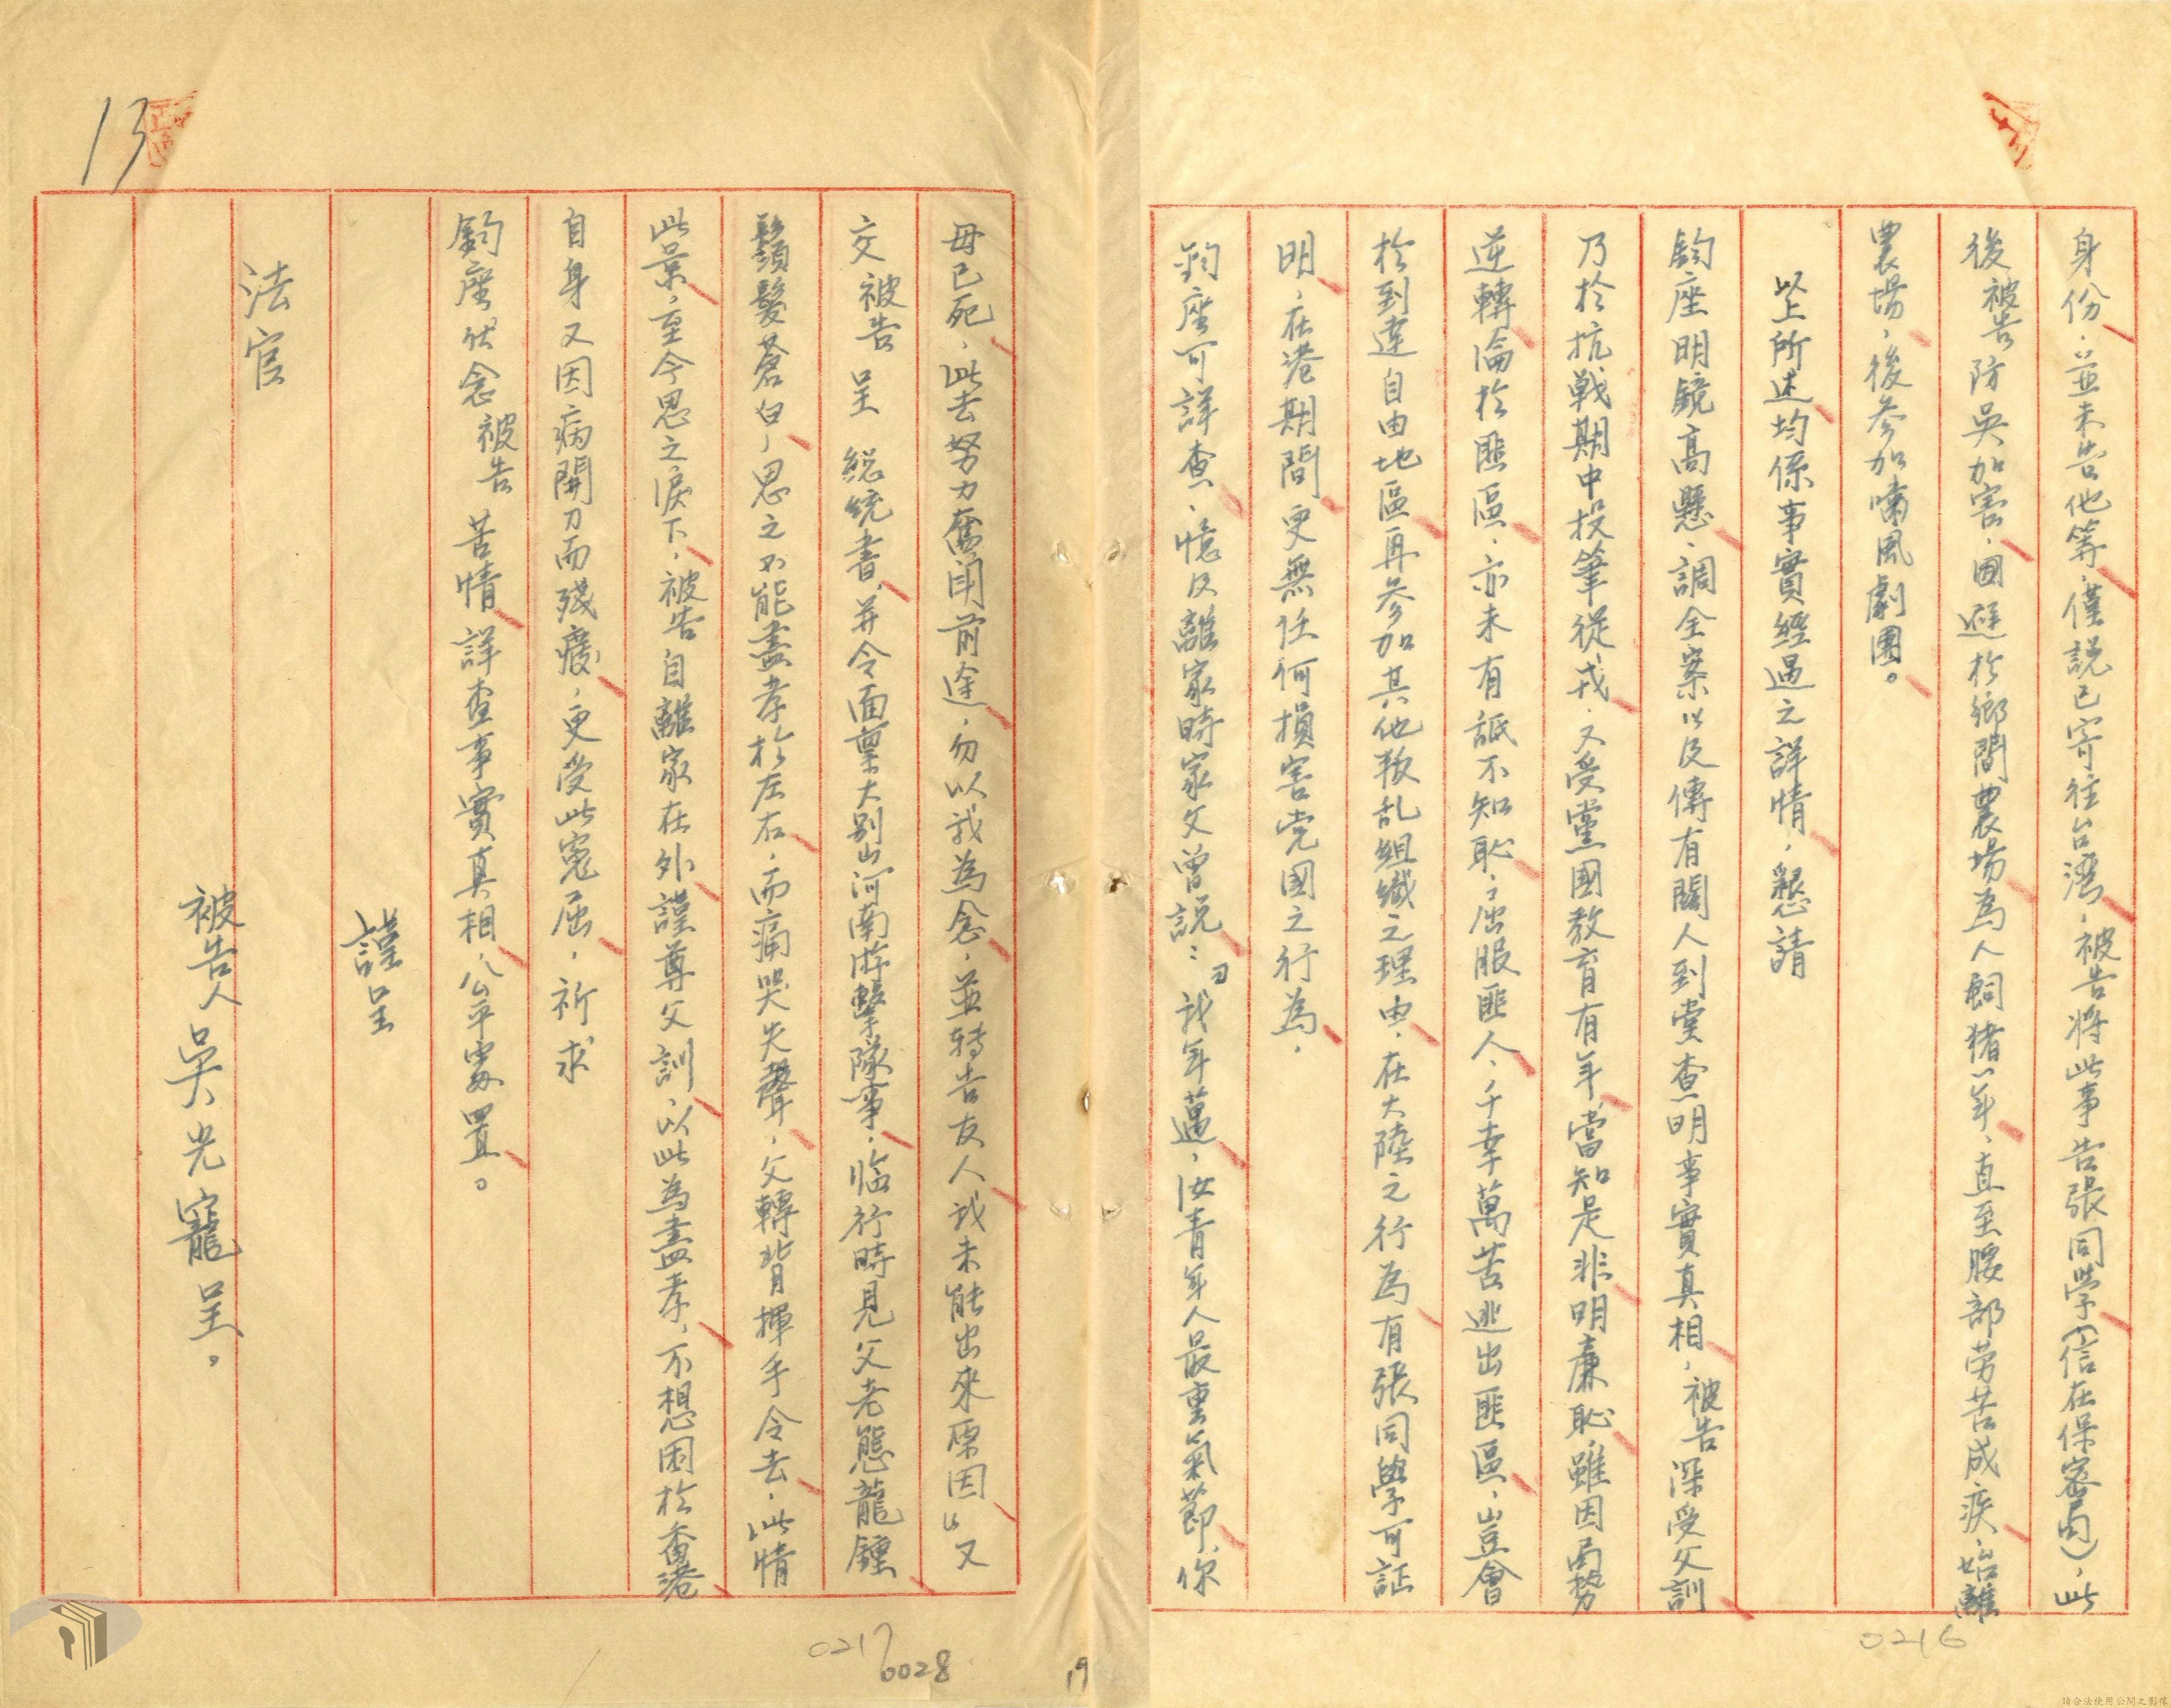 身份，並未告他等，僅說已寄往台灣，被告將此事告張同學（信在保密局），此
後被告防吳加害，囬避於鄉間農場為人飼猪一年，直至腰部劳苦成疾，始離
農場，後參加嘯風劇團。
以上所述均係事實經過之詳情，懇請
鈞座明鏡高懸，調全案以及傳有關人到堂查明事實真相，被告深受父訓
乃於抗戰期中投筆從戎，又受黨國教育有年，當知是非明廉恥，雖因局勢
逆轉淪於匪區，亦未有詆不知恥，屈服匪人，千幸萬苦逃出匪區，豈會
於到達自由地區再參加其他叛乱組織之理由，在大陸之行為有張同學可証
明，在港期間更無任何損害党國之行為，
鈞座可詳查，憶及離家時家父曾說：『我年邁，汝青年人最重氣節，你
母已死，此去努力奮鬥前途，勿以我為念，並转告友人我未能出來原因』又
交被告呈 總統書，并令面稟大别山河南游擊隊事，临行時見父老態龍鍾
鬚髮蒼白，思之不能盡孝於左右，而痛哭失聲，父轉背揮手令去，此情
此景，至今思之淚下，被告自離家在外謹尊父訓，以此為盡孝，不想困於香港
自身又因病開刀而殘廢，更受此寃屈，祈求
鈞座，伏念被告苦情詳查事實真相，公平處置。
謹呈
法官
被告人吳光寵呈。
13
0217
0028
19
0216
請合法使用公開之影像